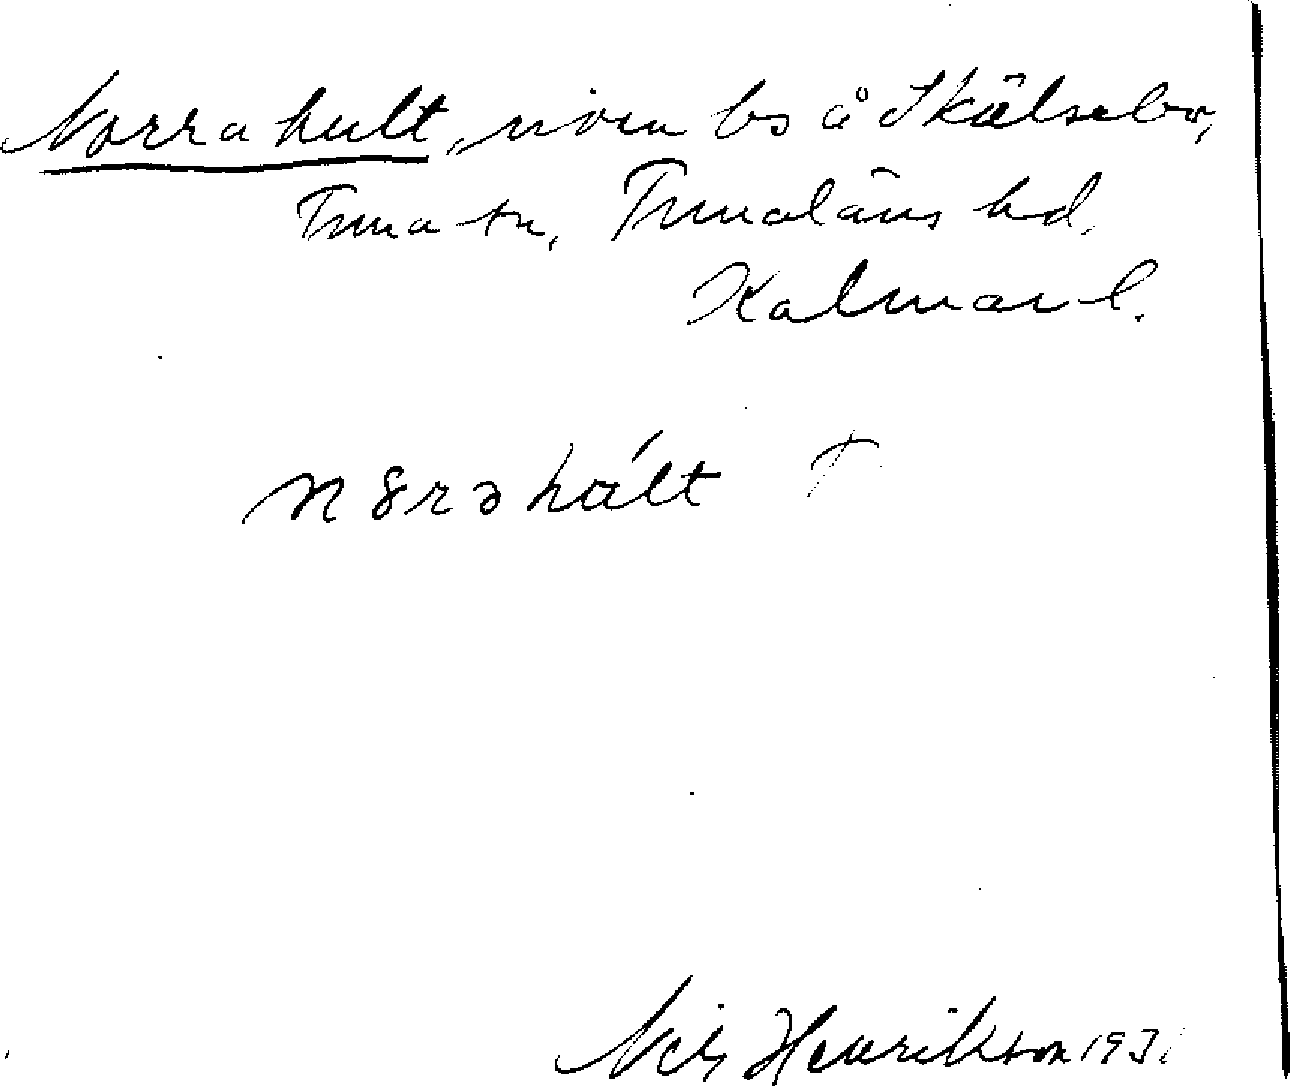 Norrahult, riven bs å Skälsebo,
Tuna sn, Tunaläns hd,
Kalmar l.
n8rəhált
Nils Henrikson 193